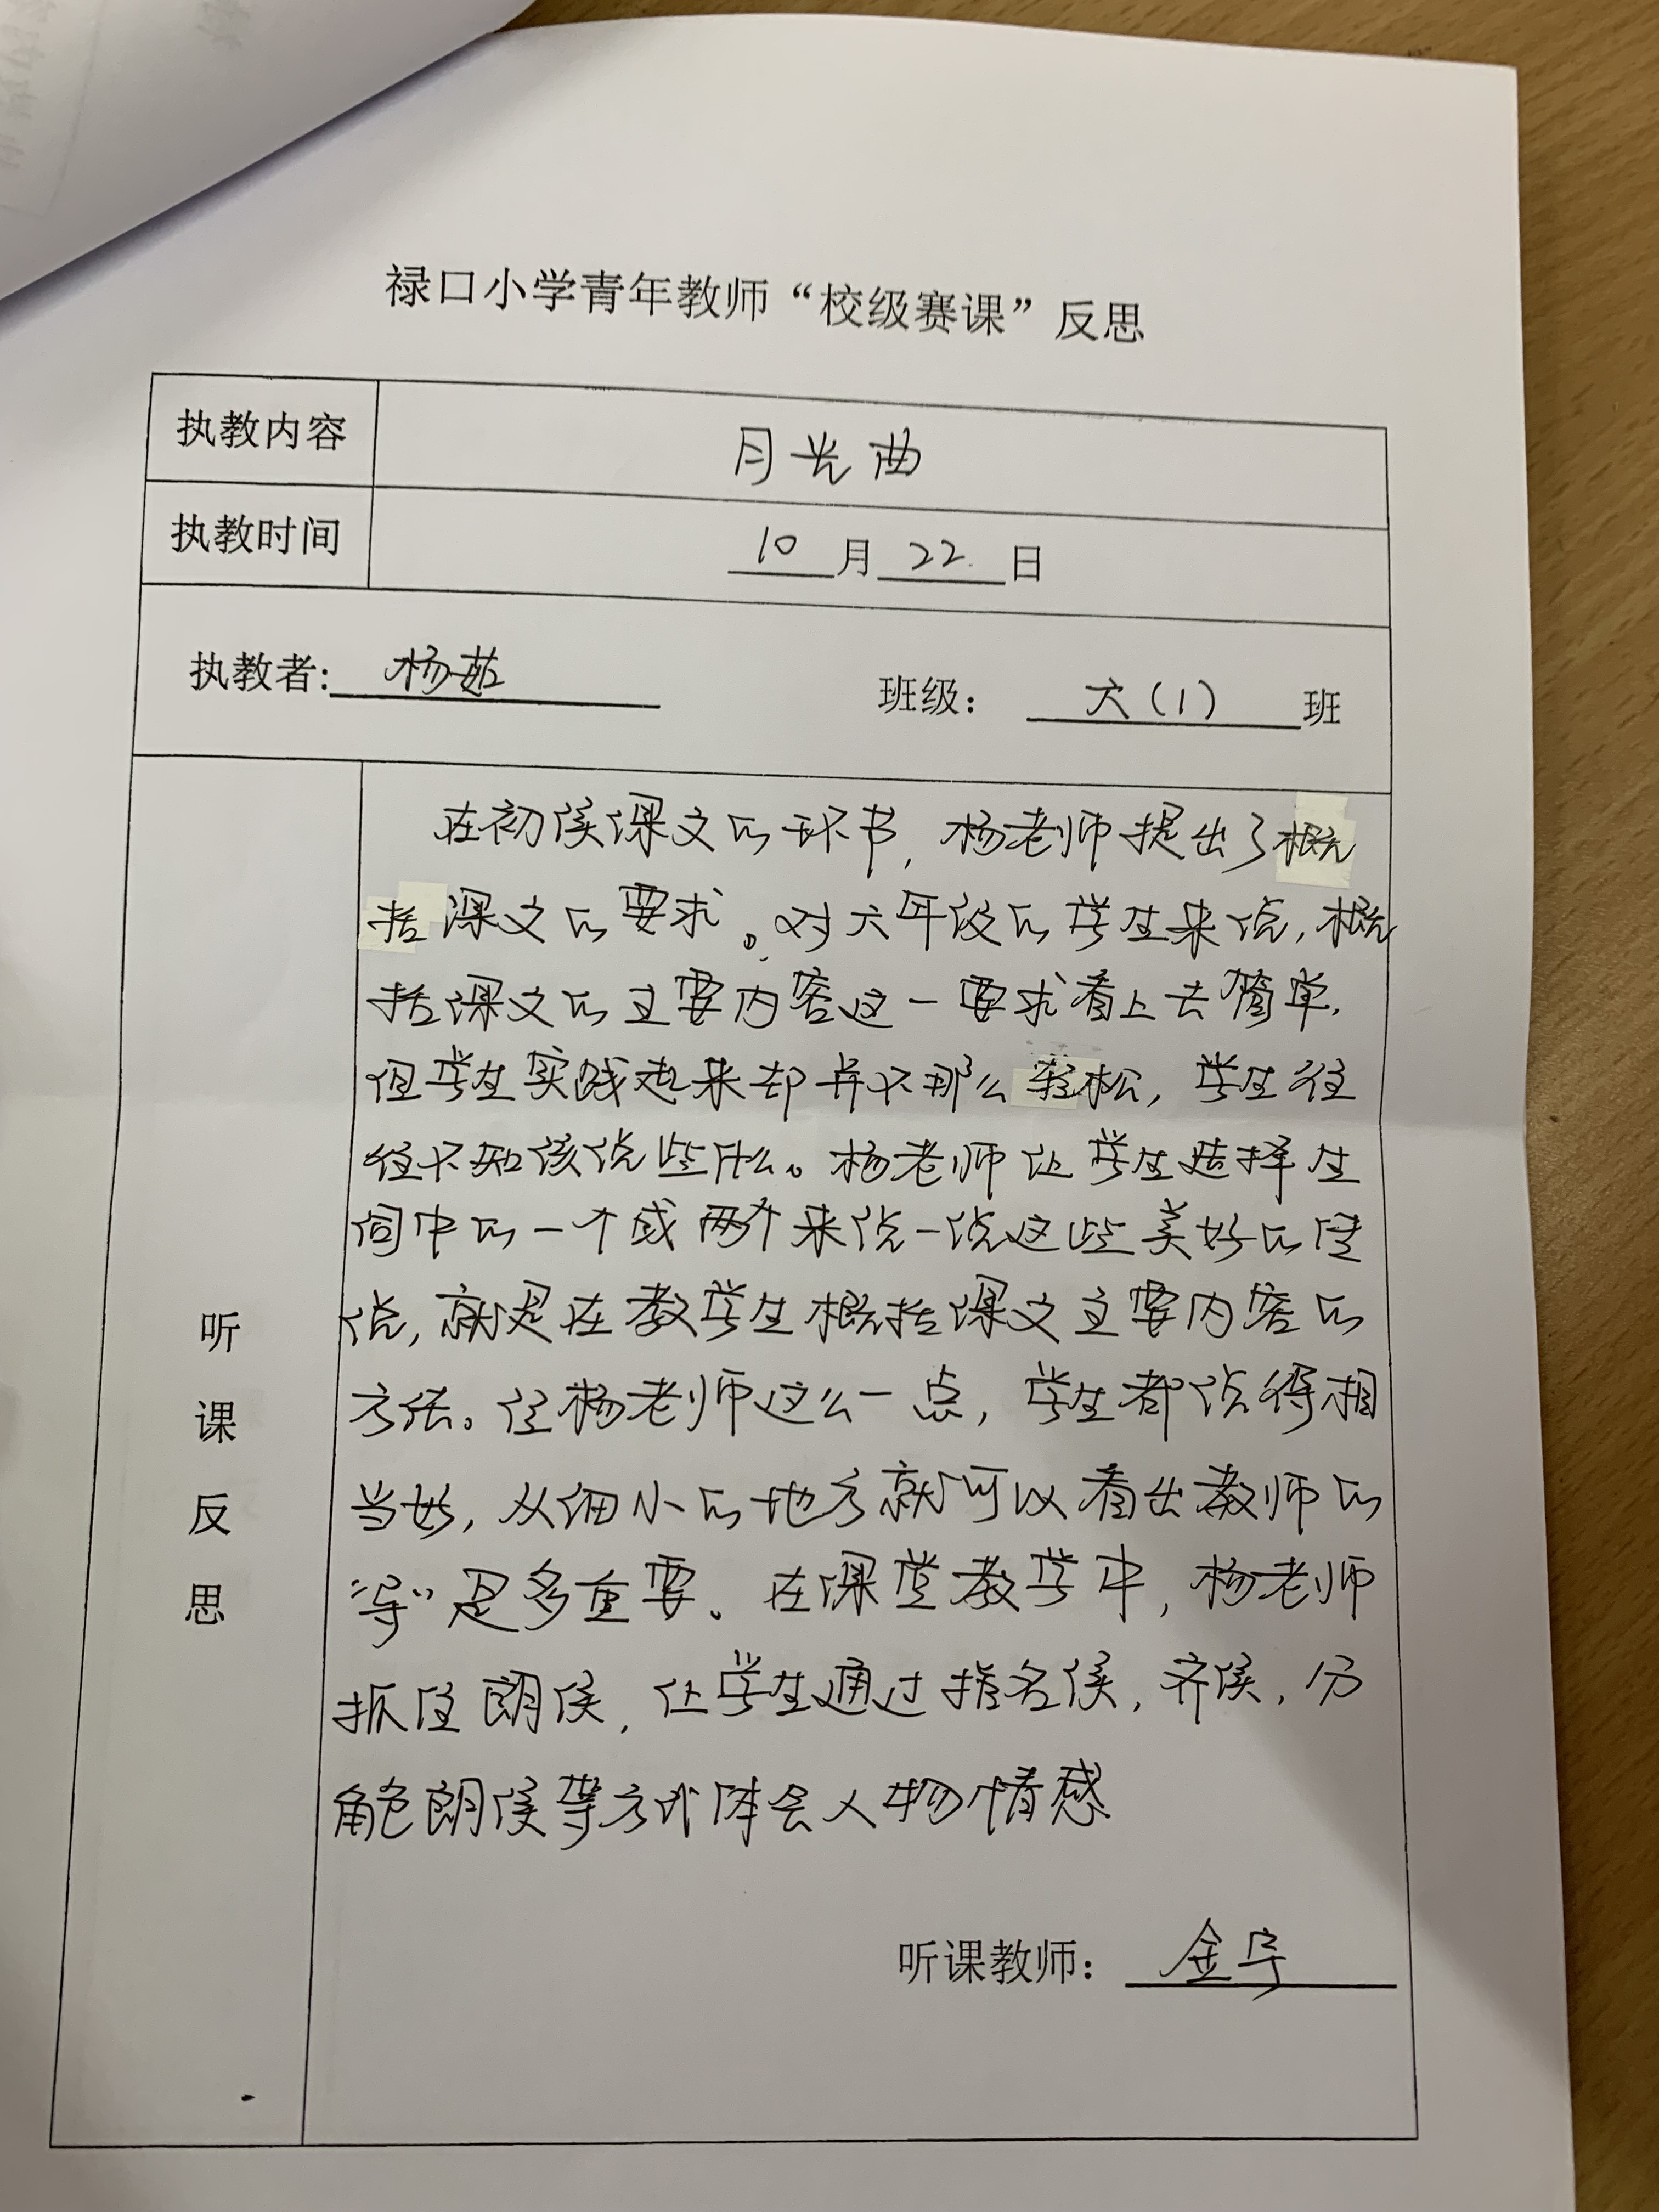 禄口小学青年教师“校级赛课”反思
执教内容 月光曲
执教时间 10月22日
执教者: 杨茹 班级: 六(1)班
听课反思
在初读课文的环节,杨老师提出了概
括课文的要求。对六年级的学生来说,概
括课文的主要内容这一要求看上去简单,
但学生实践起来却并不那么轻松,学生往
往不知该说些什么。杨老师让学生选择生
间中的一个或两个来说一说这些美好的传
说,就是在教学生概括课文主要内容的
方法。经杨老师这么一点,学生都说得相
当好,从细小的地方就可以看出教师的
“导”是多重要。在课堂教学中,杨老师
抓住朗读,让学生通过指名读,齐读,分
角色朗读等方式体会人物情感
听课教师: 金宇